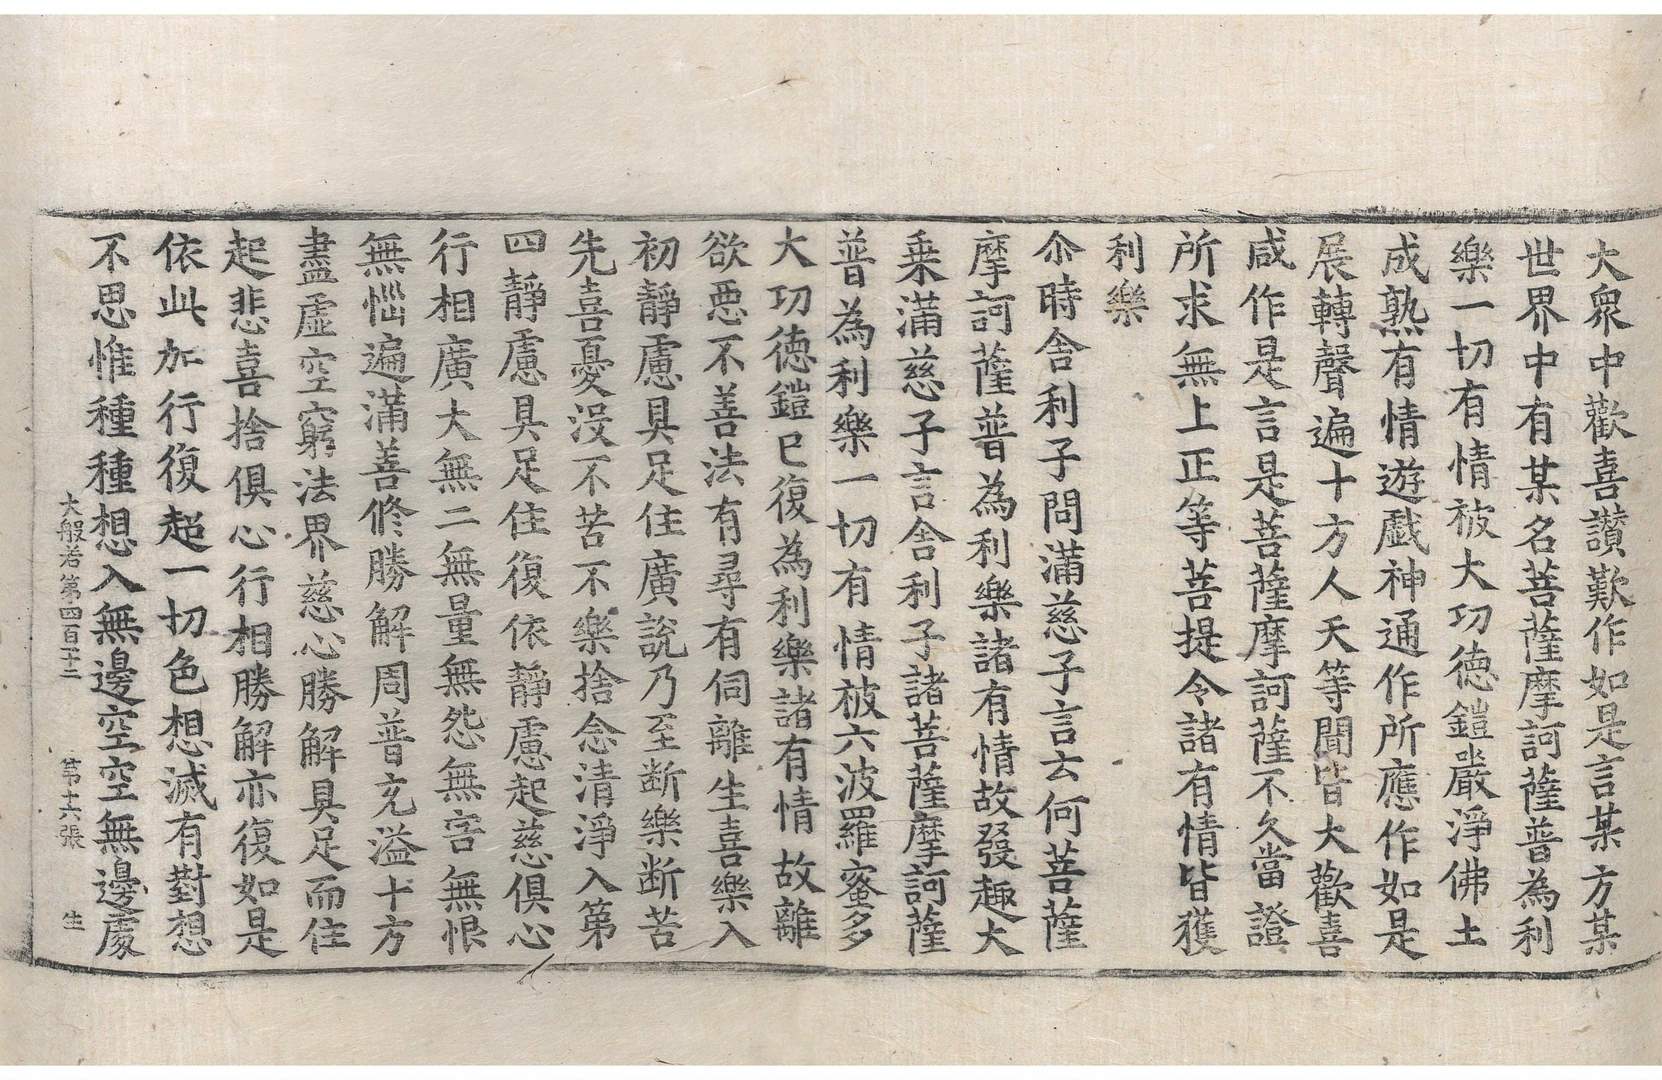 大衆中歡喜讃歎作如是言某方某
世界中有某名菩薩摩訶薩普為利
樂一切有情被大功德鎧嚴淨佛土
成熟有情遊戲神通作所應作如是
展轉聲遍十方人天等聞皆大歡喜
咸作是言是菩薩摩訶薩不久當證
所求無上正等菩提令諸有情皆獲
利樂
尒時舍利子問滿慈子言云何菩薩
摩訶薩普為利樂諸有情故發趣大
乗滿慈子言舍利子諸菩薩摩訶薩
普為利樂一切有情被六波羅蜜多
大功德鎧已復為利樂諸有情故離
欲惡不善法有尋有伺離生喜樂入
初靜慮具足住廣說乃至断樂断苦
先喜憂没不苦不樂捨念清淨入第
四靜慮具足住復依靜慮起慈俱心
行相廣大無二無量無怨無害無恨
無惱遍滿善修勝解周普充溢十方
盡虛空窮法界慈心勝解具足而住
起悲喜捨俱心行相勝解亦復如是
依此加行復超一切色想滅有對想
不思惟種種想入無邊空空無邊處
大般若第四百十二 第十六張 生